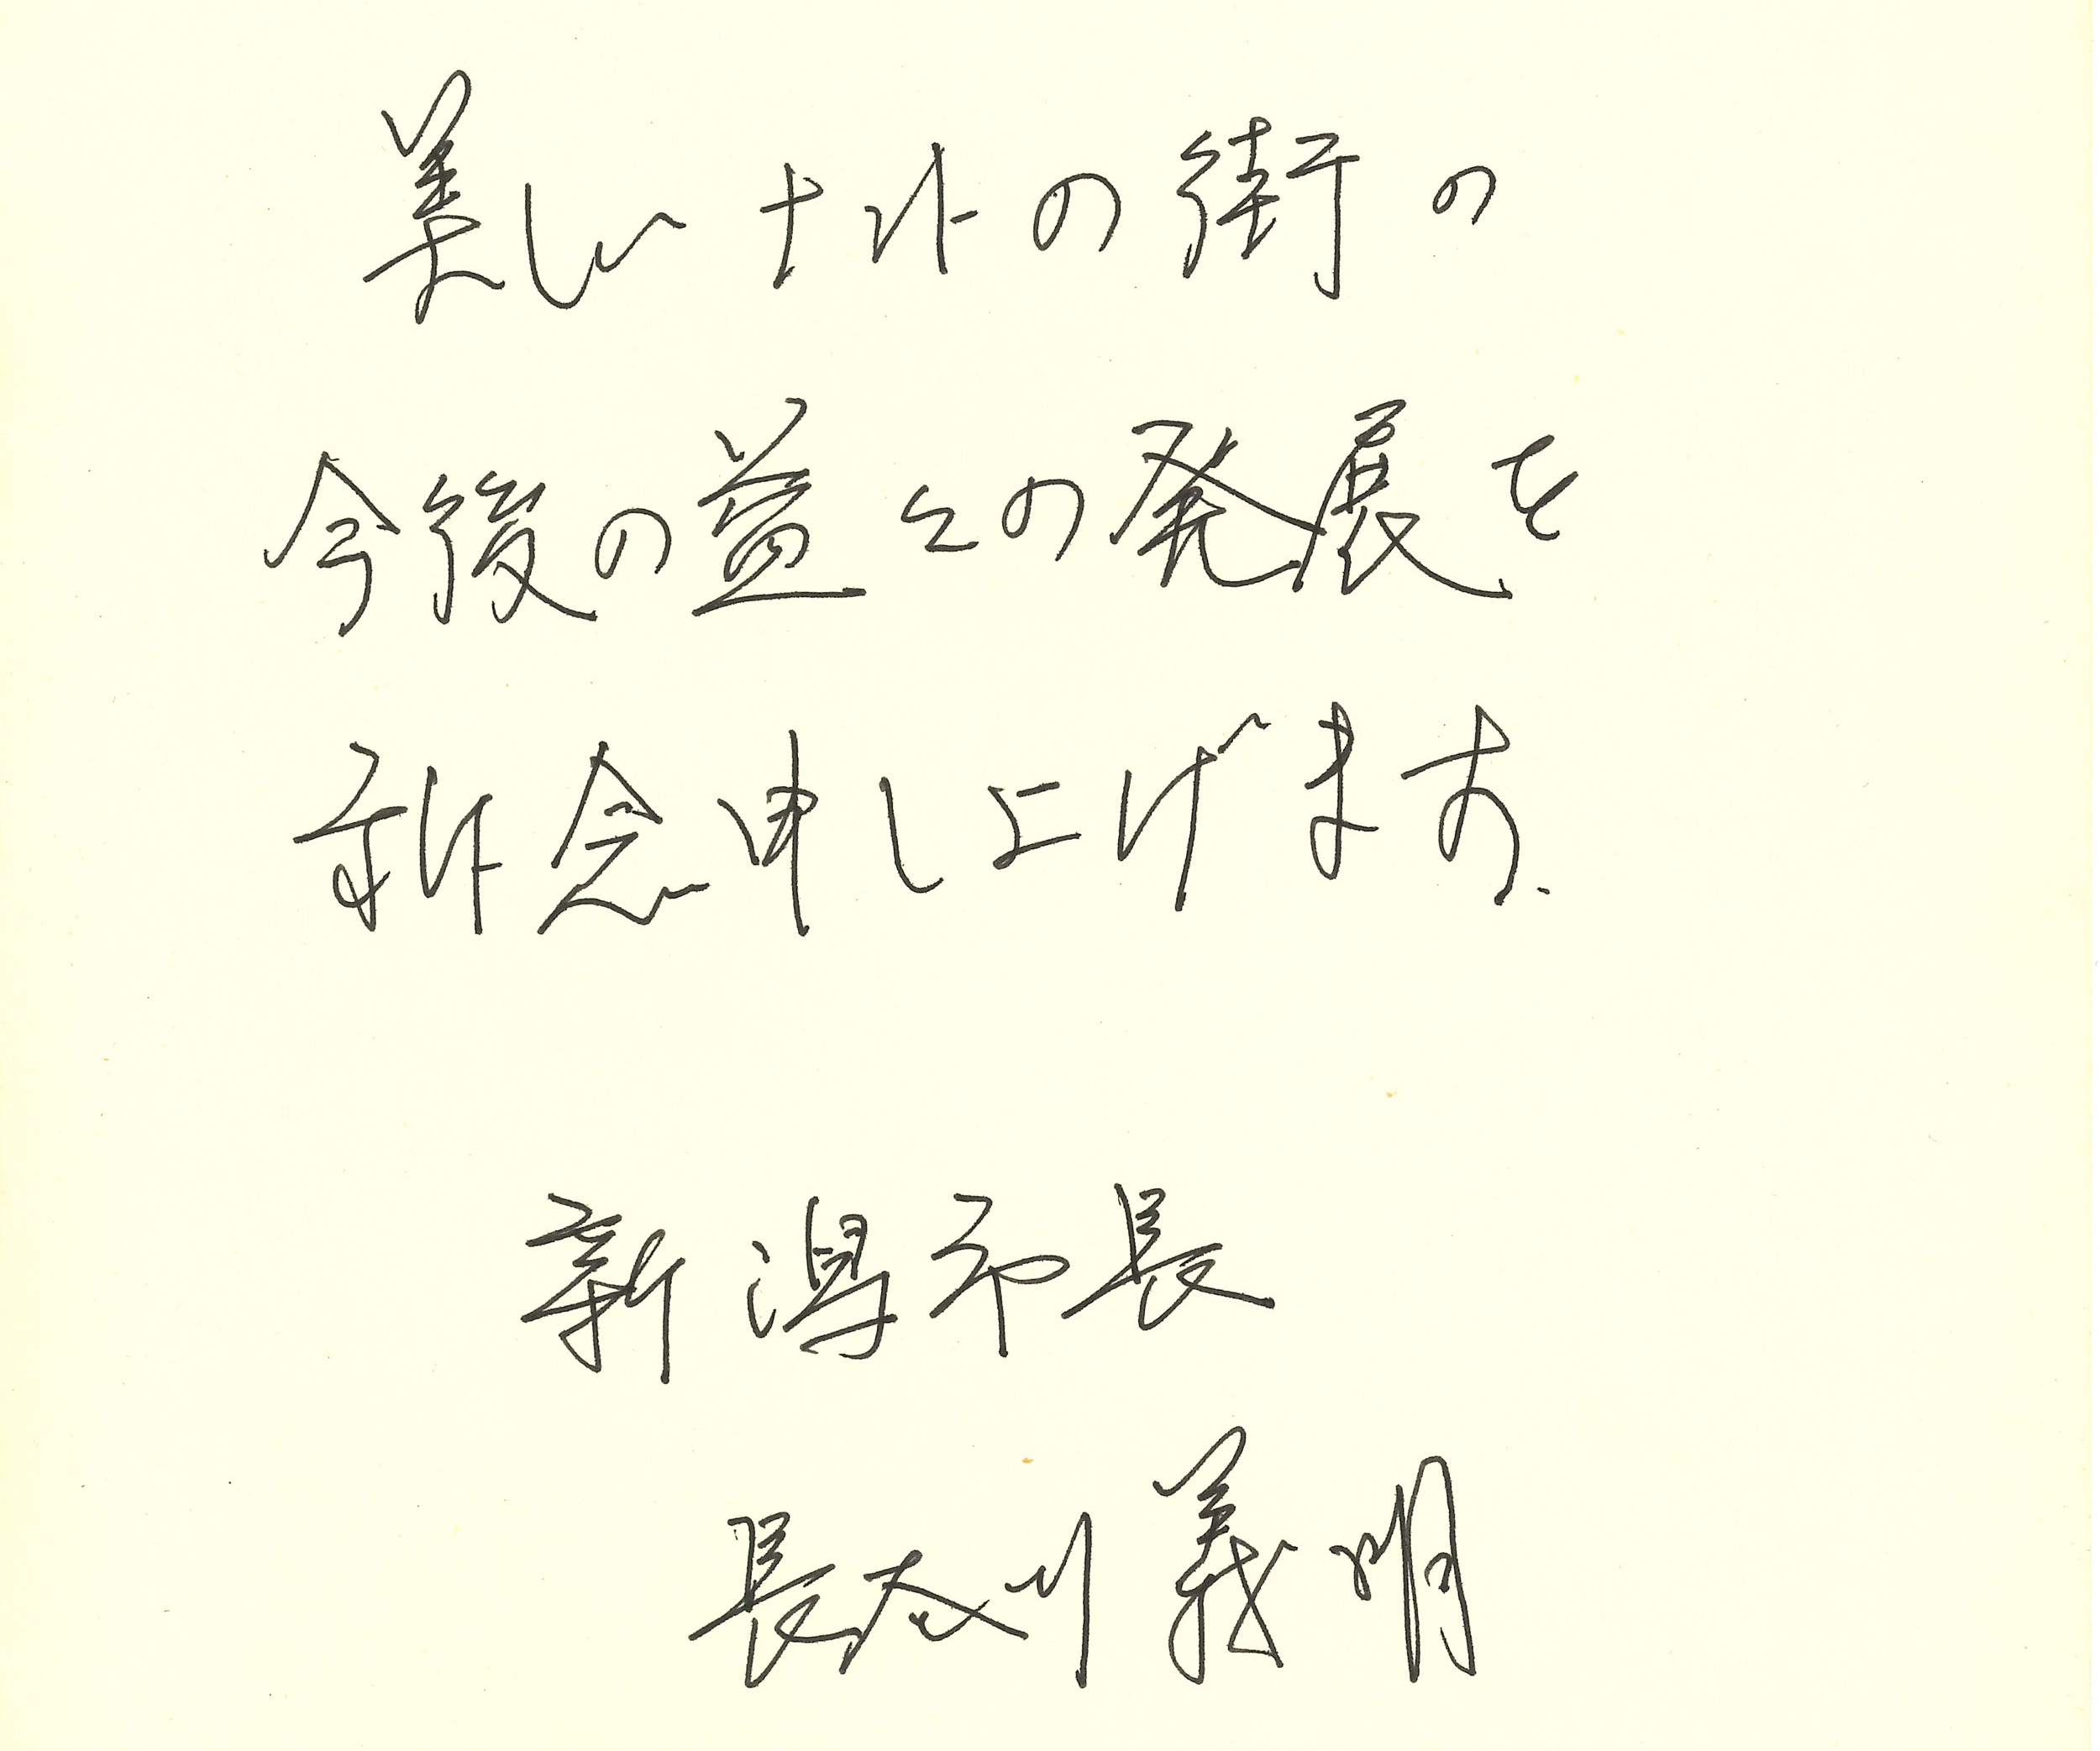 美しいナントの街の
今後の益々の発展を
祈念申し上げます.
新潟市長
長谷川義明